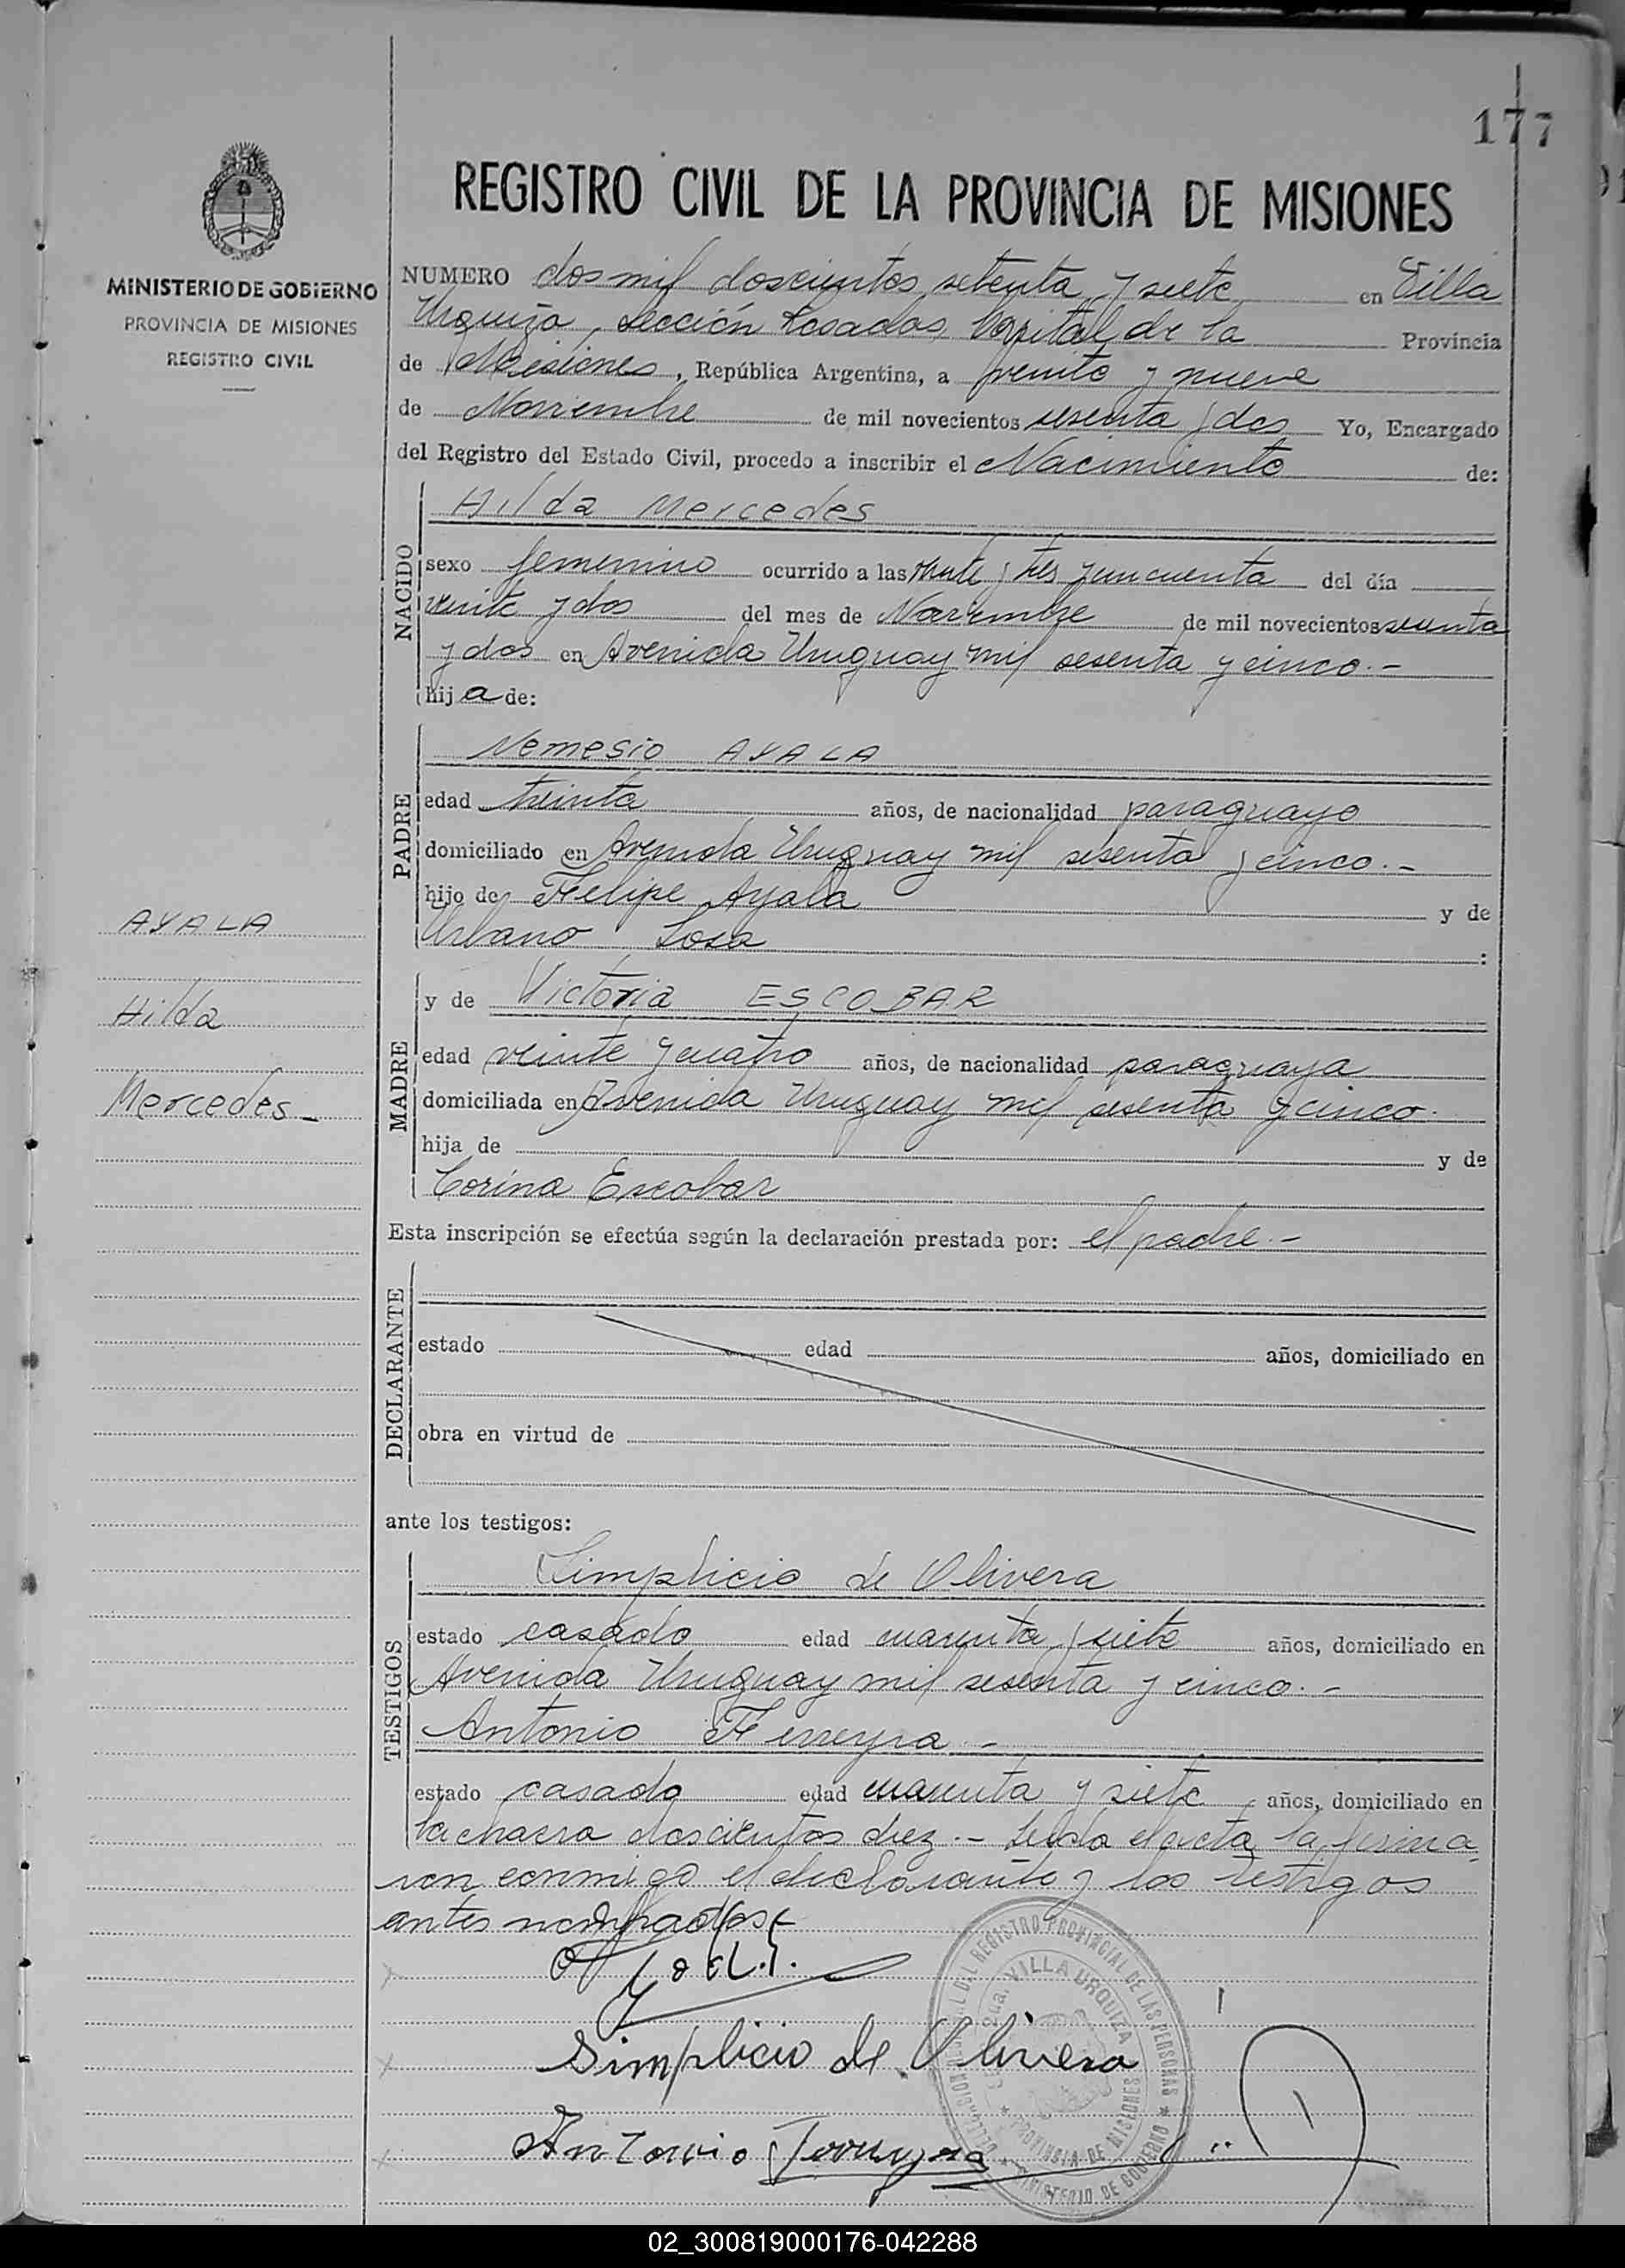 177
REGISTRO CIVIL DE LA PROVINCIA DE MISIONES
MINISTERIO DE GOBIERNO
PROVINCIA DE MISIONES
REGISTRO CIVIL
NUMERO dos mil doscientos setenta y siete en Villa
Urquiza, Sección Posadas, Capital de la Provincia
de Misiones, República Argentina, a veinte y nueve
de Noviembre de mil novecientos sesenta y dos Yo, Encargado
del Registro del Estado Civil, procedo a inscribir el Nacimiento de:
NACIDO
Hilda Mercedes
sexo femenino ocurrido a las veinte y tres y cincuenta del día
veinte y dos del mes de Noviembre de mil novecientos sesenta
y dos en Avenida Uruguay mil sesenta y cinco.-
hija de:
PADRE
Nemesio AYALA
edad treinta años, de nacionalidad paraguayo
domiciliado en Avenida Uruguay mil sesenta y cinco.-
hijo de Felipe Ayala y de
Urbano Sosa :
AYALA
Hilda
Mercedes-
MADRE
y de Victoria ESCOBAR
edad veinte y cuatro años, de nacionalidad paraguaya
domiciliada en Avenida Uruguay mil sesenta y cinco.
hija de y de
Corina Escobar
Esta inscripción se efectúa según la declaración prestada por: el padre.-
DECLARANTE
estado edad años, domiciliado en
obra en virtud de
ante los testigos:
TESTIGOS
Simplicio de Olivera
estado casado edad cuarenta y siete años, domiciliado en
Avenida Uruguay mil sesenta y cinco.-
Antonio Ferreyra-
estado casado edad cuarenta y siete años, domiciliado en
la chacra doscientos diez.- Leida el acta la firma
ron conmigo el declarante y los testigos
antes nombrados-
Simplicio de Olivera
Antonio Ferreyra
DEL REGISTRO PROVINCIAL DE LAS PERSONAS
VILLA URQUIZA
PROVINCIA DE MISIONES
MINISTERIO DE GOBIERNO
02_300819000176-042288